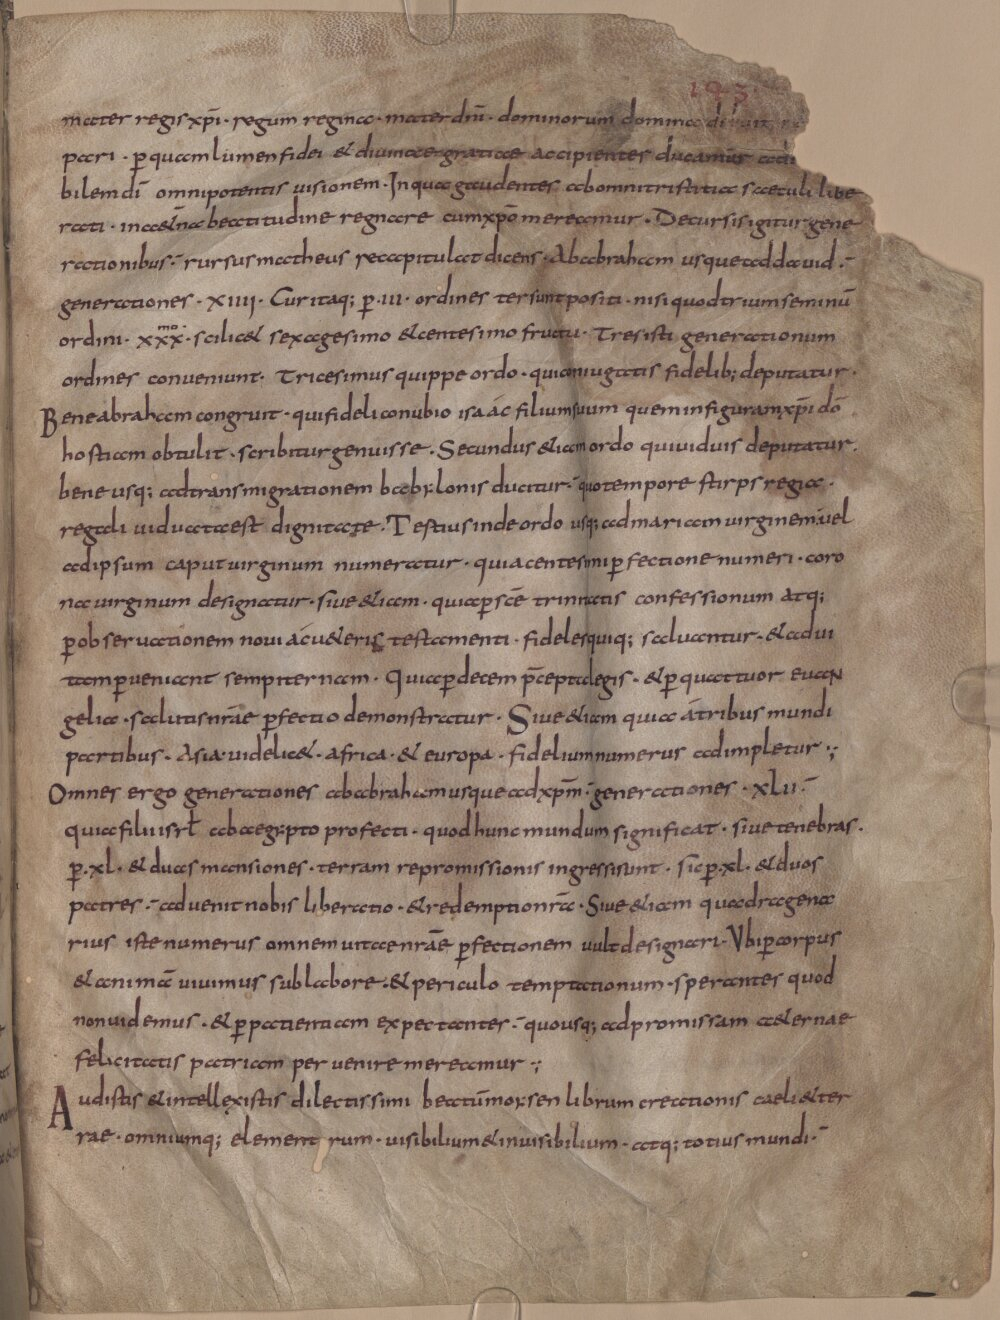 193
mater regis xp̄i · regum regina · mater dn̄i · dominorum domina
pari · p̱ quam lumen fidei & diuinae gratiae accipientes ducamur
bilem dī omnipotentis uisionem · In qua gaudentes ab omni tristitia saeculi libe
rati · in ae&̄na beatitudine regnare cum xp̄o mereamur · Decursis igitur gene
rationibus · rursus matheus recapitulat dicens · Ab abraham usque ad dauid ·
generationes · XIIII · Cur itaq; p̱ · III · ordines ter sunt positi · nisi quod trium seminū
ordini · xxxmo · scilic& sexagesimo & centesimo fructu · Tres isti generationum
ordines conueniunt · Tricesimus quippe ordo · qui coniugatis fidelib; deputatur ·
Bene abraham congruit · qui fideli conubio isaác filium suum quem in figuram xp̄i dō
hostiam obtulit · scribitur genuisse · Secundus &iam ordo qui uiduis deputatur ·
bene usq; ad transmigrationem babylonis ducitur · quo tempore stirps regia ·
regali uiduata est dignitate · Testius inde ordo usq; ad mariam uirginem · uel
ad ipsum caput uirginum numeratur · quia centesimi p̱fectione numeri · coro
na uirginum designatur · siue &iam · quia p̱ scē trinitatis confessionum atq;
p̱ obseruationem noui ác u&eris testamenti · fideles quiq; saluantur · & ad ui
tam p̱ueniant sempiternam · Quia p̱ decem p̄cepta legis · & p̱ quattuor euan
gelia · salutis nrae p̱fectio demonstratur · Siue &iam quia á tribus mundi
partibus · Asia uidelic& · africa · & europa · fidelium numerus adimpletur :;
Omnes ergo generationes ab abraham usque ad xp̄m · generationes · XLII ·
quia filii isrł ab aegypto profecti · quod hunc mundum significat · siue tenebras ·
p̱ · xl · & duas mansiones · terram repromissionis ingressi sunt · sic p̱ · xl · & duos
patres · aduenit nobis liberatio · & redemptio nrā · Siue &iam quadragena
rius iste numerus omnem uitae nrae p̱fectionem uult designari · Vbi p̱ corpus
& animā uiuimus sub labore · & periculo temptationum · sperantes quod
non uidemus · & p̱ patientiam expectantes · quousq; ad promissam a&ernae
felicitatis patriam peruenire mereamur :;
Audistis & intellexistis dilectissimi beatū moysen librum creationis caeli & ter
rae · omniumq; element rum · uisibilium & inuisibilium · atq; totius mundi ·